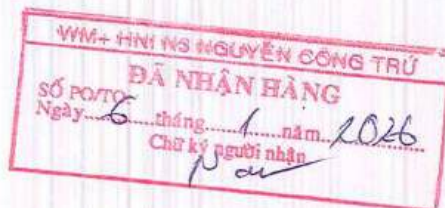 WM+ HNI NS NGUYỄN CÔNG TRỨ
ĐÃ NHẬN HÀNG
SỐ PO/TO
Ngày 6 tháng 1 năm 2026
Chữ ký người nhận